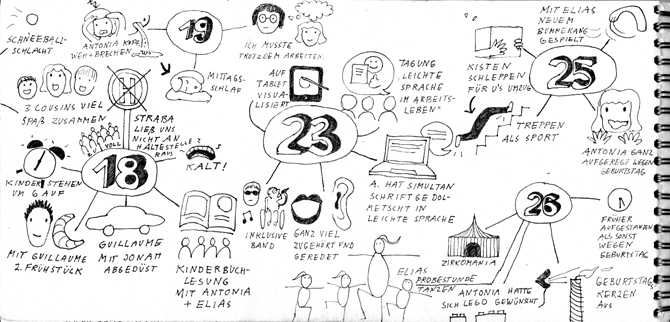 SCHNEEBALL-
SCHLACHT
ANTONIA KOPF-
WEH + BRECHEN
19
ICH MUSSTE
TROTZDEM ARBEITEN.
MITTAGS-
SCHLAF
3 COUSINS VIEL
SPAß ZUSAMMEN
STRABA
LIEß UNS
NICHT AN
HALTESTELLE
RAUS
VOLL
18
KALT!
KINDER STEHEN
UM 6 AUF
MIT GUILLAUME
2. FRÜHSTÜCK
GUILLAUME
MIT JONAH
ABGEDÜST
KINDERBUCH-
LESUNG
MIT ANTONIA
+ ELIAS
AUF
TABLET
VISUA-
LISIERT
TAGUNG
"LEICHTE
SPRACHE
IM ARBEITS-
LEBEN"
23
A. HAT SIMULTAN
SCHRIFTGEDOL-
METSCHT IN
LEICHTE SPRACHE
INKLUSIVE
BAND
GANZ VIEL
ZUGEHÖRT UND
GEREDET
MIT ELIAS
NEUEM
BUMMERANG
GESPIELT
KISTEN
SCHLEPPEN
FÜR U'S UMZUG
25
TREPPEN
ALS SPORT
ANTONIA GANZ
AUFGEREGT WEGEN
GEBURTSTAG
26
FRÜHER
AUFGESTANDEN
ALS SONST
WEGEN
GEBURTSTAG
ZIRKOMANIA
ELIAS
PROBESTUNDE
TANZEN
ANTONIA HATTE
SICH LEGO GEWÜNSCHT
GEBURTSTAGS
KERZEN
AUS